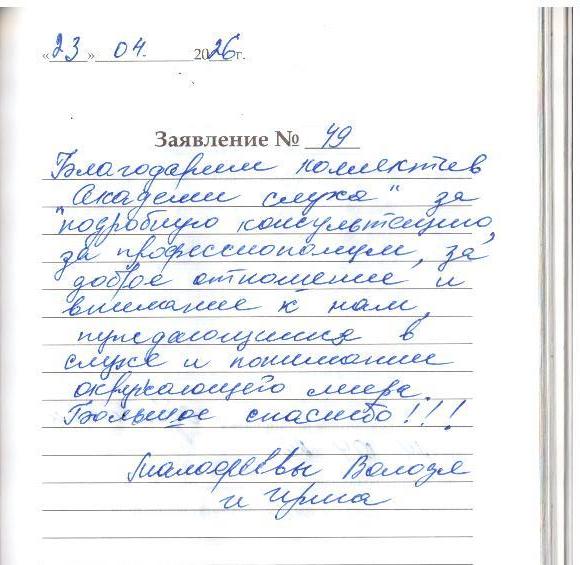 «23» 04. 2026г.
Заявление № 49
Благодарим коллектив
"Академи слуха" за
подробную консультацию,
за профессионализм, за
доброе отношение и
внимание к нам,
нуждающимся в
слухе и понимании
окружающего мира.
Большое спасибо!!!
Володя
и Ирина